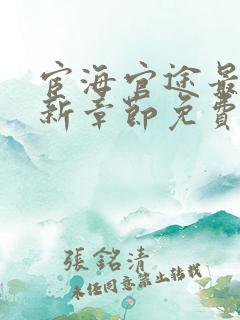 宦海官途最
新章節免費
張銘清
未经同意禁止转载